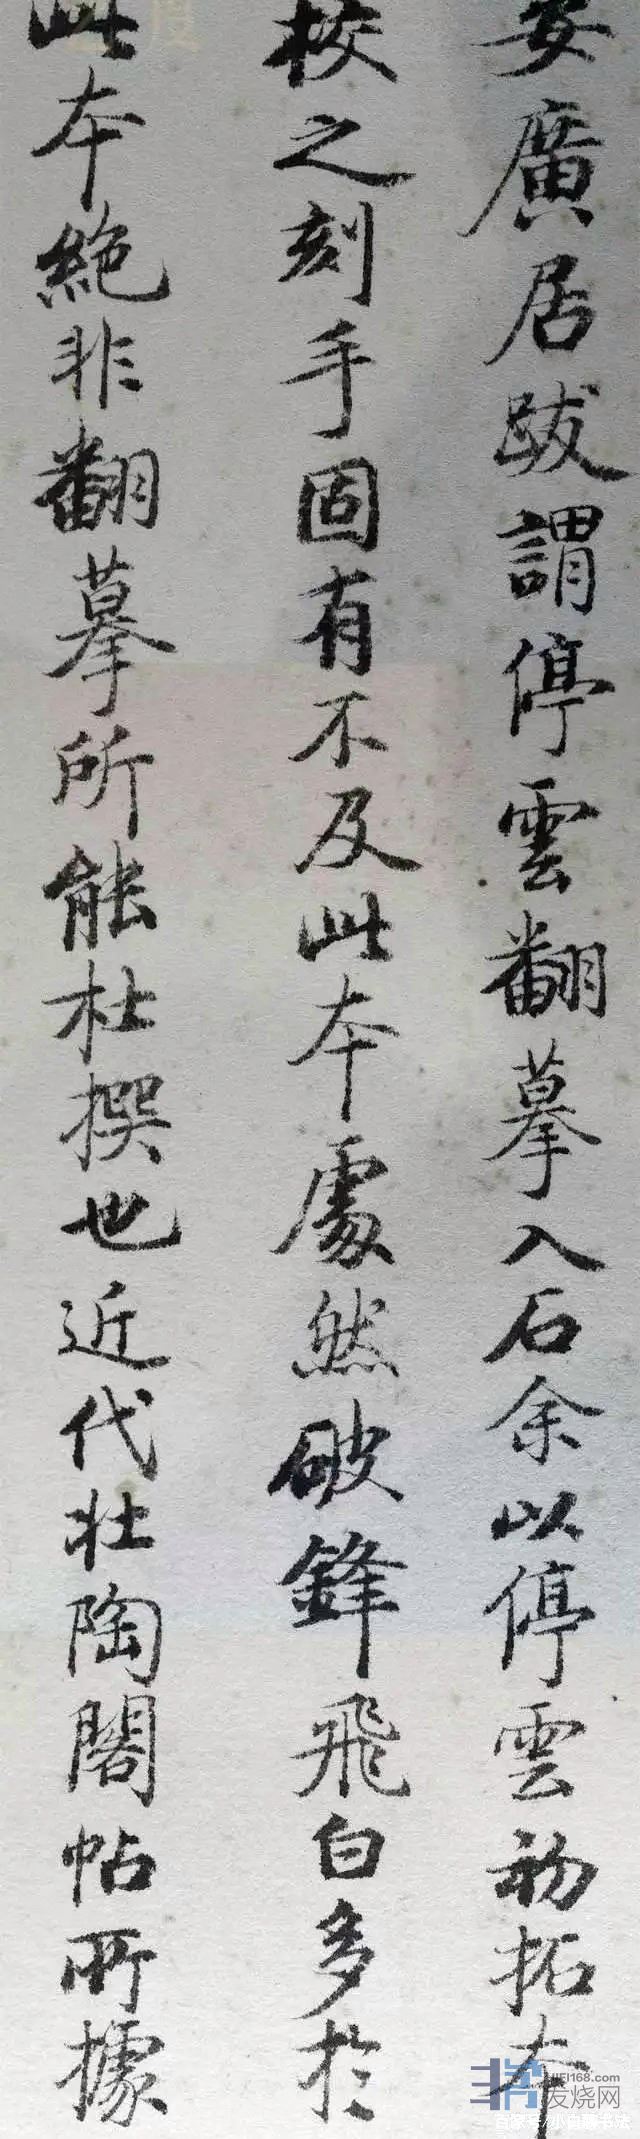 安廣居跋謂停雲翻摹入石余以停雲初拓本
校之刻手固有不及此本處然破鋒飛白多於
此本絶非翻摹所能杜撰也近代壯陶閣帖所據
HIFI168.com
发烧网